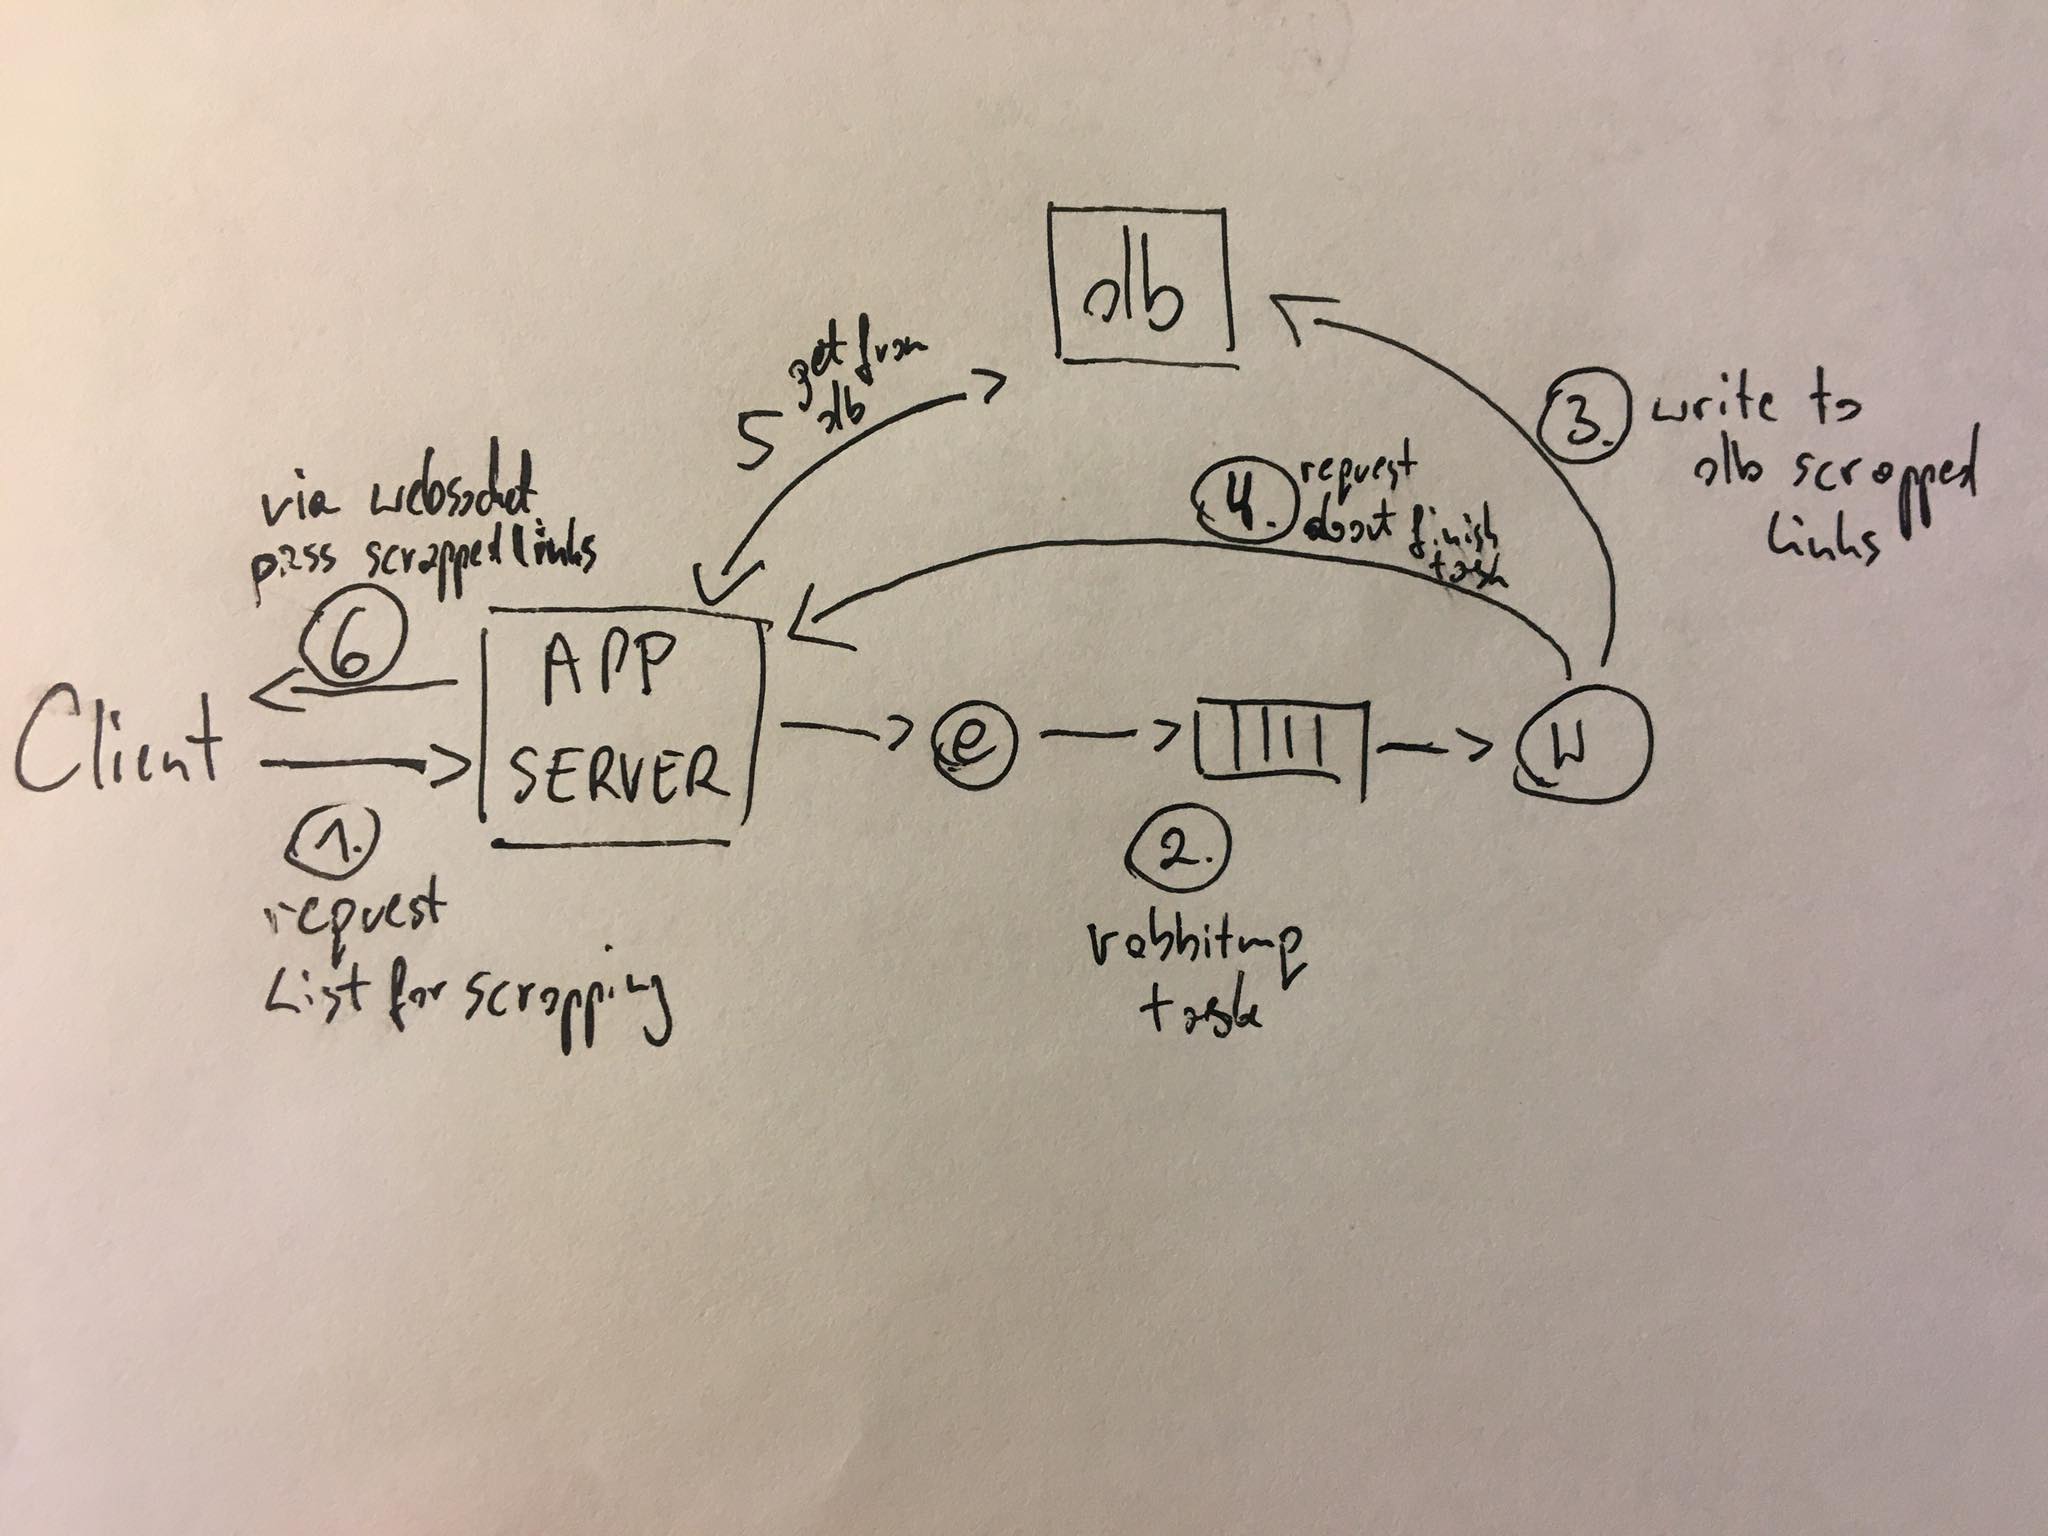 db
5 get from
db
3. write to
db scrapped
links
4. request
about finish
task
via websocket
pass scrapped links
6
Client
APP
SERVER
e
W
1.
request
List for scrapping
2.
rabbitmq
task